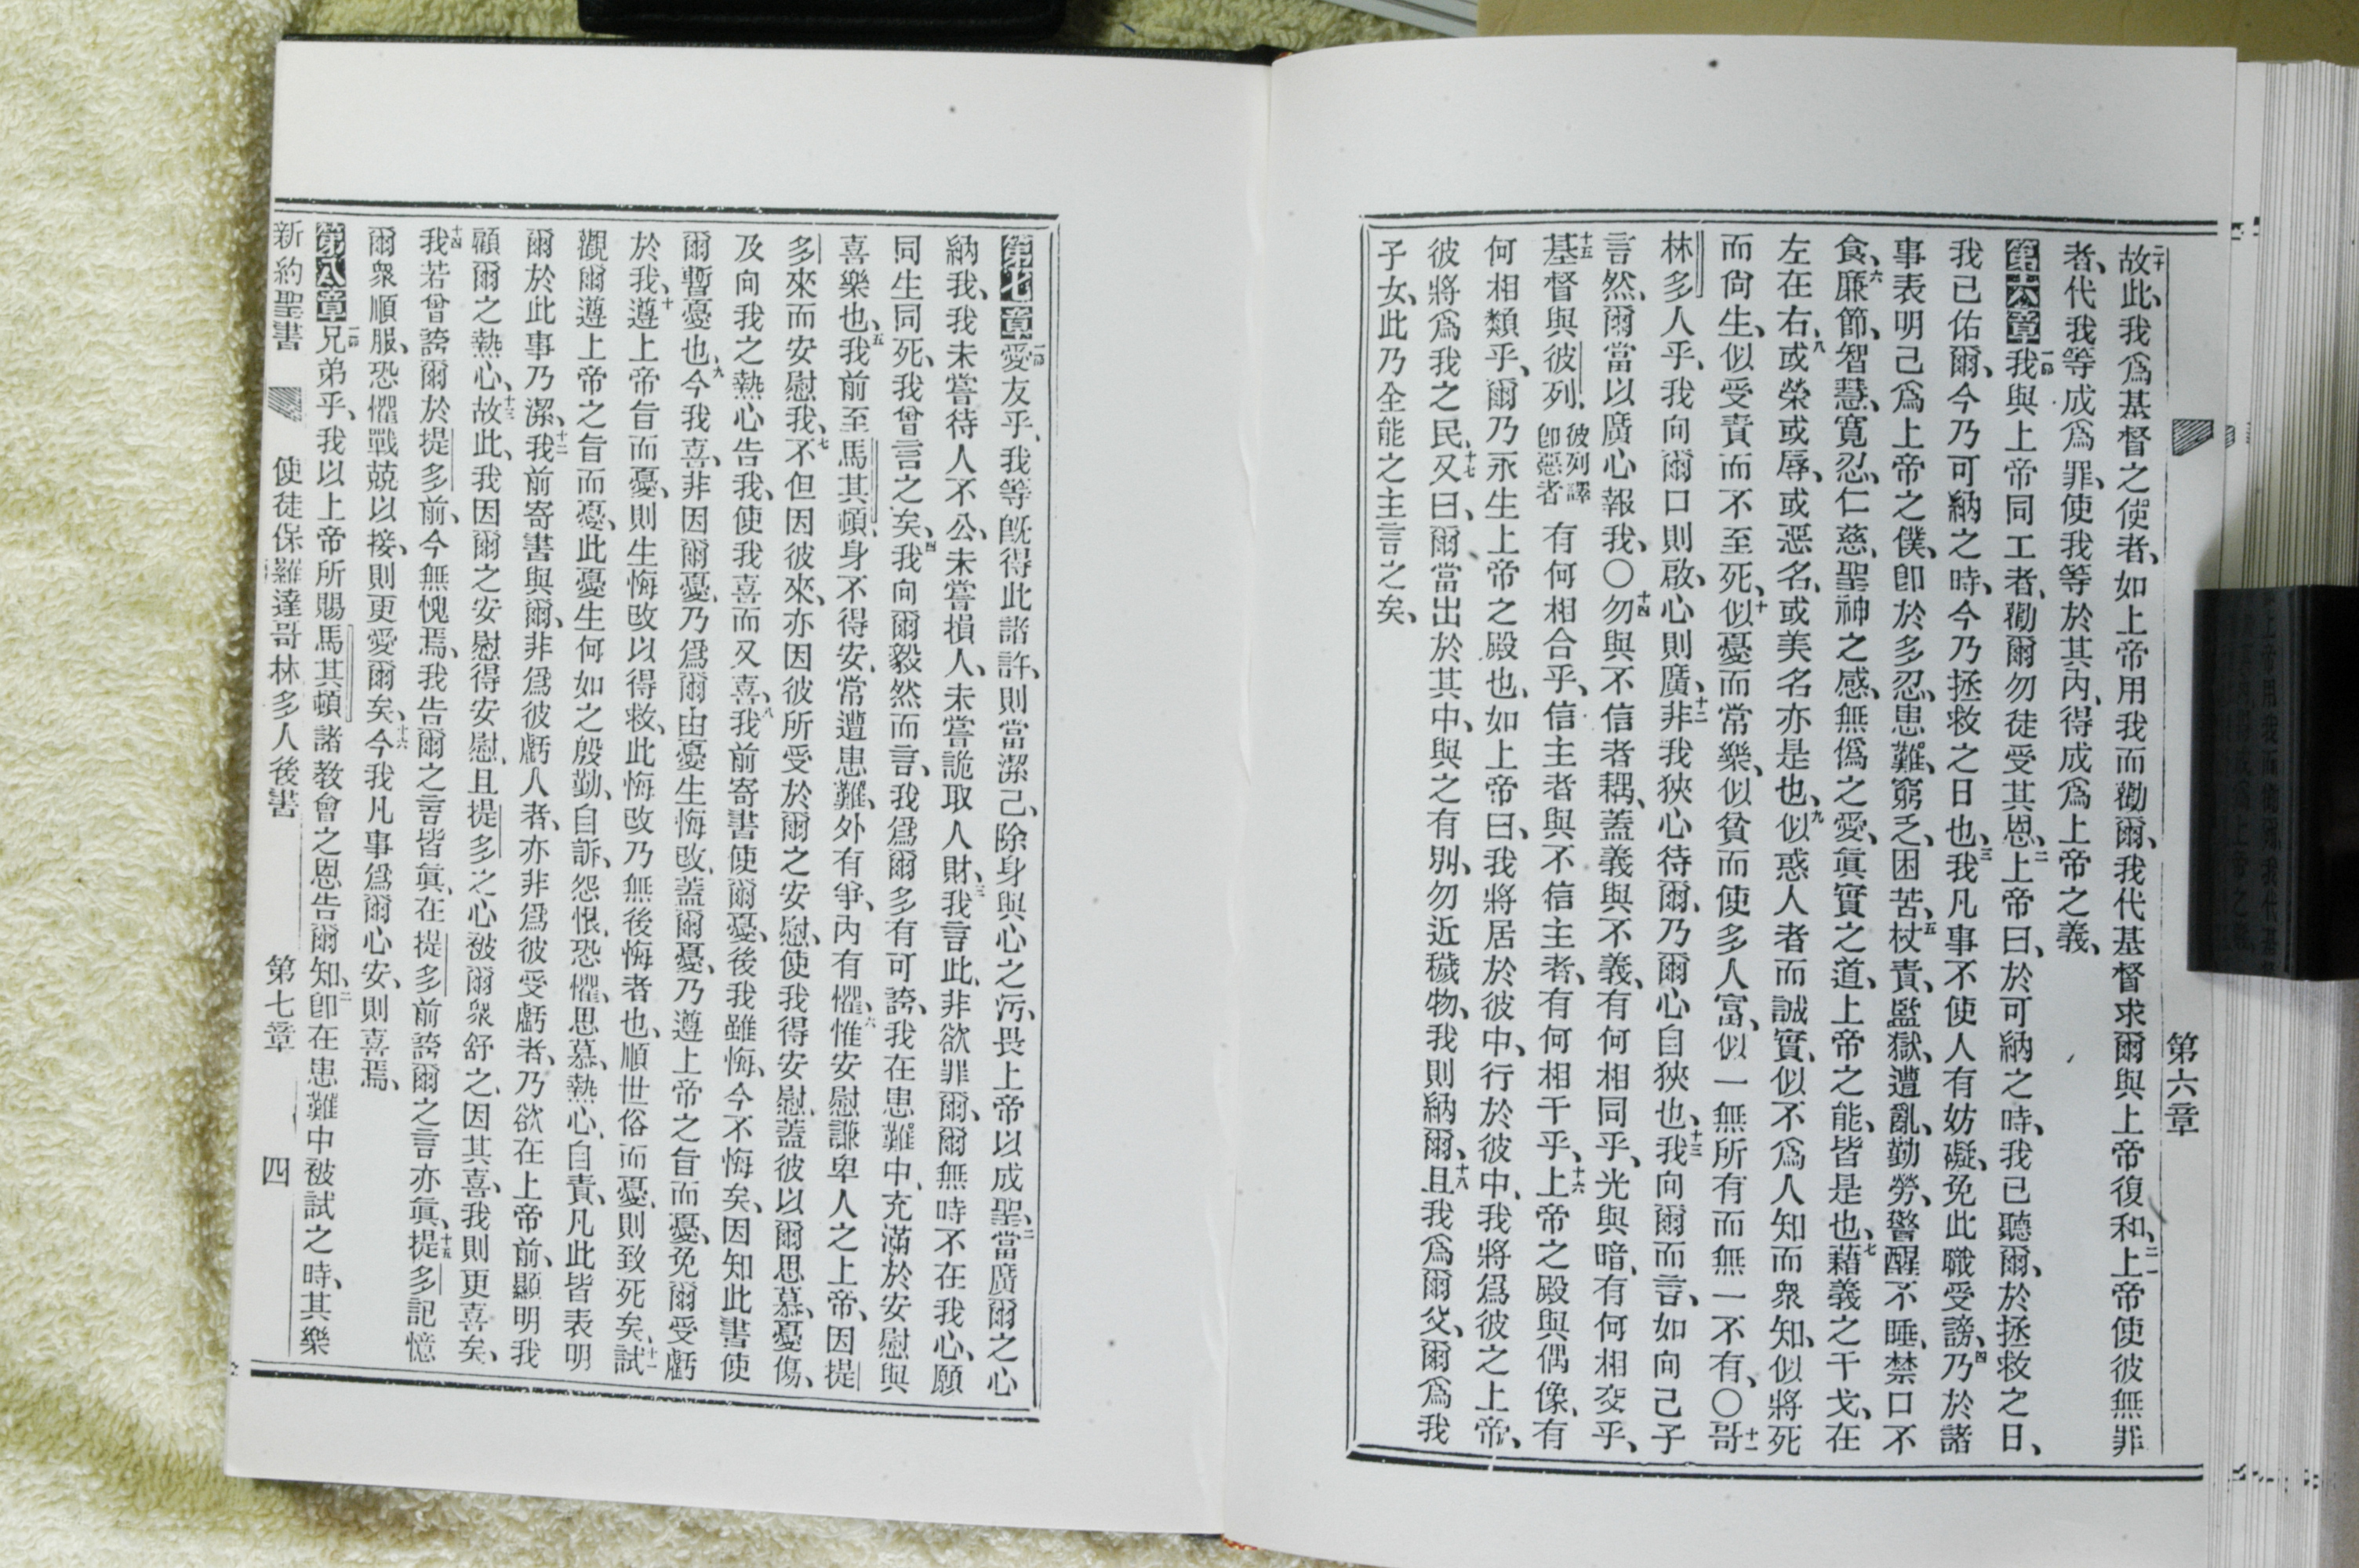 第六章
二十故此、我爲基督之使者、如上帝用我而勸爾、我代基督求爾與上帝復和、二一上帝使彼無罪
者、代我等成爲罪、使我等於其內、得成爲上帝之義、
第六章一節我與上帝同工者、勸爾勿徒受其恩、二上帝曰、於可納之時、我已聽爾、於拯救之日、
我已佑爾、今乃可納之時、今乃拯救之日也、三我凡事不使人有妨礙、免此職受謗、四乃於諸
事表明己爲上帝之僕、卽於多忍、患難、窮乏、困苦、五杖責、監獄、遭亂、勤勞、警醒不睡、禁口不
食、六廉節、智慧、寬忍、仁慈、聖神之感、無僞之愛、眞實之道、上帝之能、皆是也、七藉義之干戈、在
左在右、八或榮或辱、或惡名、或美名亦是也、九似惑人者而誠實、似不爲人知而衆知、似將死
而尙生、似受責而不至死、十似憂而常樂、似貧而使多人富、似一無所有而無一不有、〇十一哥
林多人乎、我向爾口則啟、心則廣、十二非我狹心待爾、乃爾心自狹也、十三我向爾而言、如向己子
言然、爾當以廣心報我、〇十四勿與不信者耦、蓋義與不義、有何相同乎、光與暗、有何相交乎、
十五基督與彼列、彼列譯卽惡者有何相合乎、信主者與不信主者、有何相干乎、十六上帝之殿與偶像、有
何相類乎、爾乃永生上帝之殿也、如上帝曰、我將居於彼中、行於彼中、我將爲彼之上帝、
彼將爲我之民、十七又曰、爾當出於其中、與之有別、勿近穢物、我則納爾、十八且我爲爾父、爾爲我
子女、此乃全能之主言之矣、
第七章一節愛友乎、我等旣得此諸許、則當潔己、除身與心之污、畏上帝以成聖、二當廣爾之心
納我、我未嘗待人不公、未嘗損人、未嘗詭取人財、三我言此、非欲罪爾、爾無時不在我心、願
同生同死、我曾言之矣、四我向爾毅然而言、我爲爾多有可誇、我在患難中、充滿於安慰與
喜樂也、五我前至馬其頓、身不得安、常遭患難、外有爭、內有懼、六惟安慰謙卑人之上帝、因提
多來而安慰我、七不但因彼來、亦因彼所受於爾之安慰、使我得安慰、蓋彼以爾思慕、憂傷、
及向我之熱心告我、使我喜而又喜、八我前寄書使爾憂、後我雖悔、今不悔矣、因知此書使
爾暫憂也、九今我喜、非因爾憂、乃爲爾由憂生悔改、蓋爾憂、乃遵上帝之旨而憂、免爾受虧
於我、十遵上帝旨而憂、則生悔改以得救、此悔改乃無後悔者也、順世俗而憂、則致死矣、十一試
觀爾遵上帝之旨而憂、此憂生何如之殷勤、自訴、怨恨、恐懼、思慕、熱心、自責、凡此皆表明
爾於此事乃潔、十二我前寄書與爾、非爲彼虧人者、亦非爲彼受虧者、乃欲在上帝前、顯明我
顧爾之熱心、十三故此、我因爾之安慰得安慰、且提多之心被爾衆舒之、因其喜、我則更喜矣、
十四我若曾誇爾於提多前、今無愧焉、我告爾之言皆眞、在提多前誇爾之言亦眞、十五提多記憶
爾衆順服、恐懼戰兢以接、則更愛爾矣、十六今我凡事爲爾心安、則喜焉、
第八章一節兄弟乎、我以上帝所賜馬其頓諸教會之恩告爾知、二卽在患難中被試之時、其樂
新約聖書 使徒保羅達哥林多人後書 第七章 四